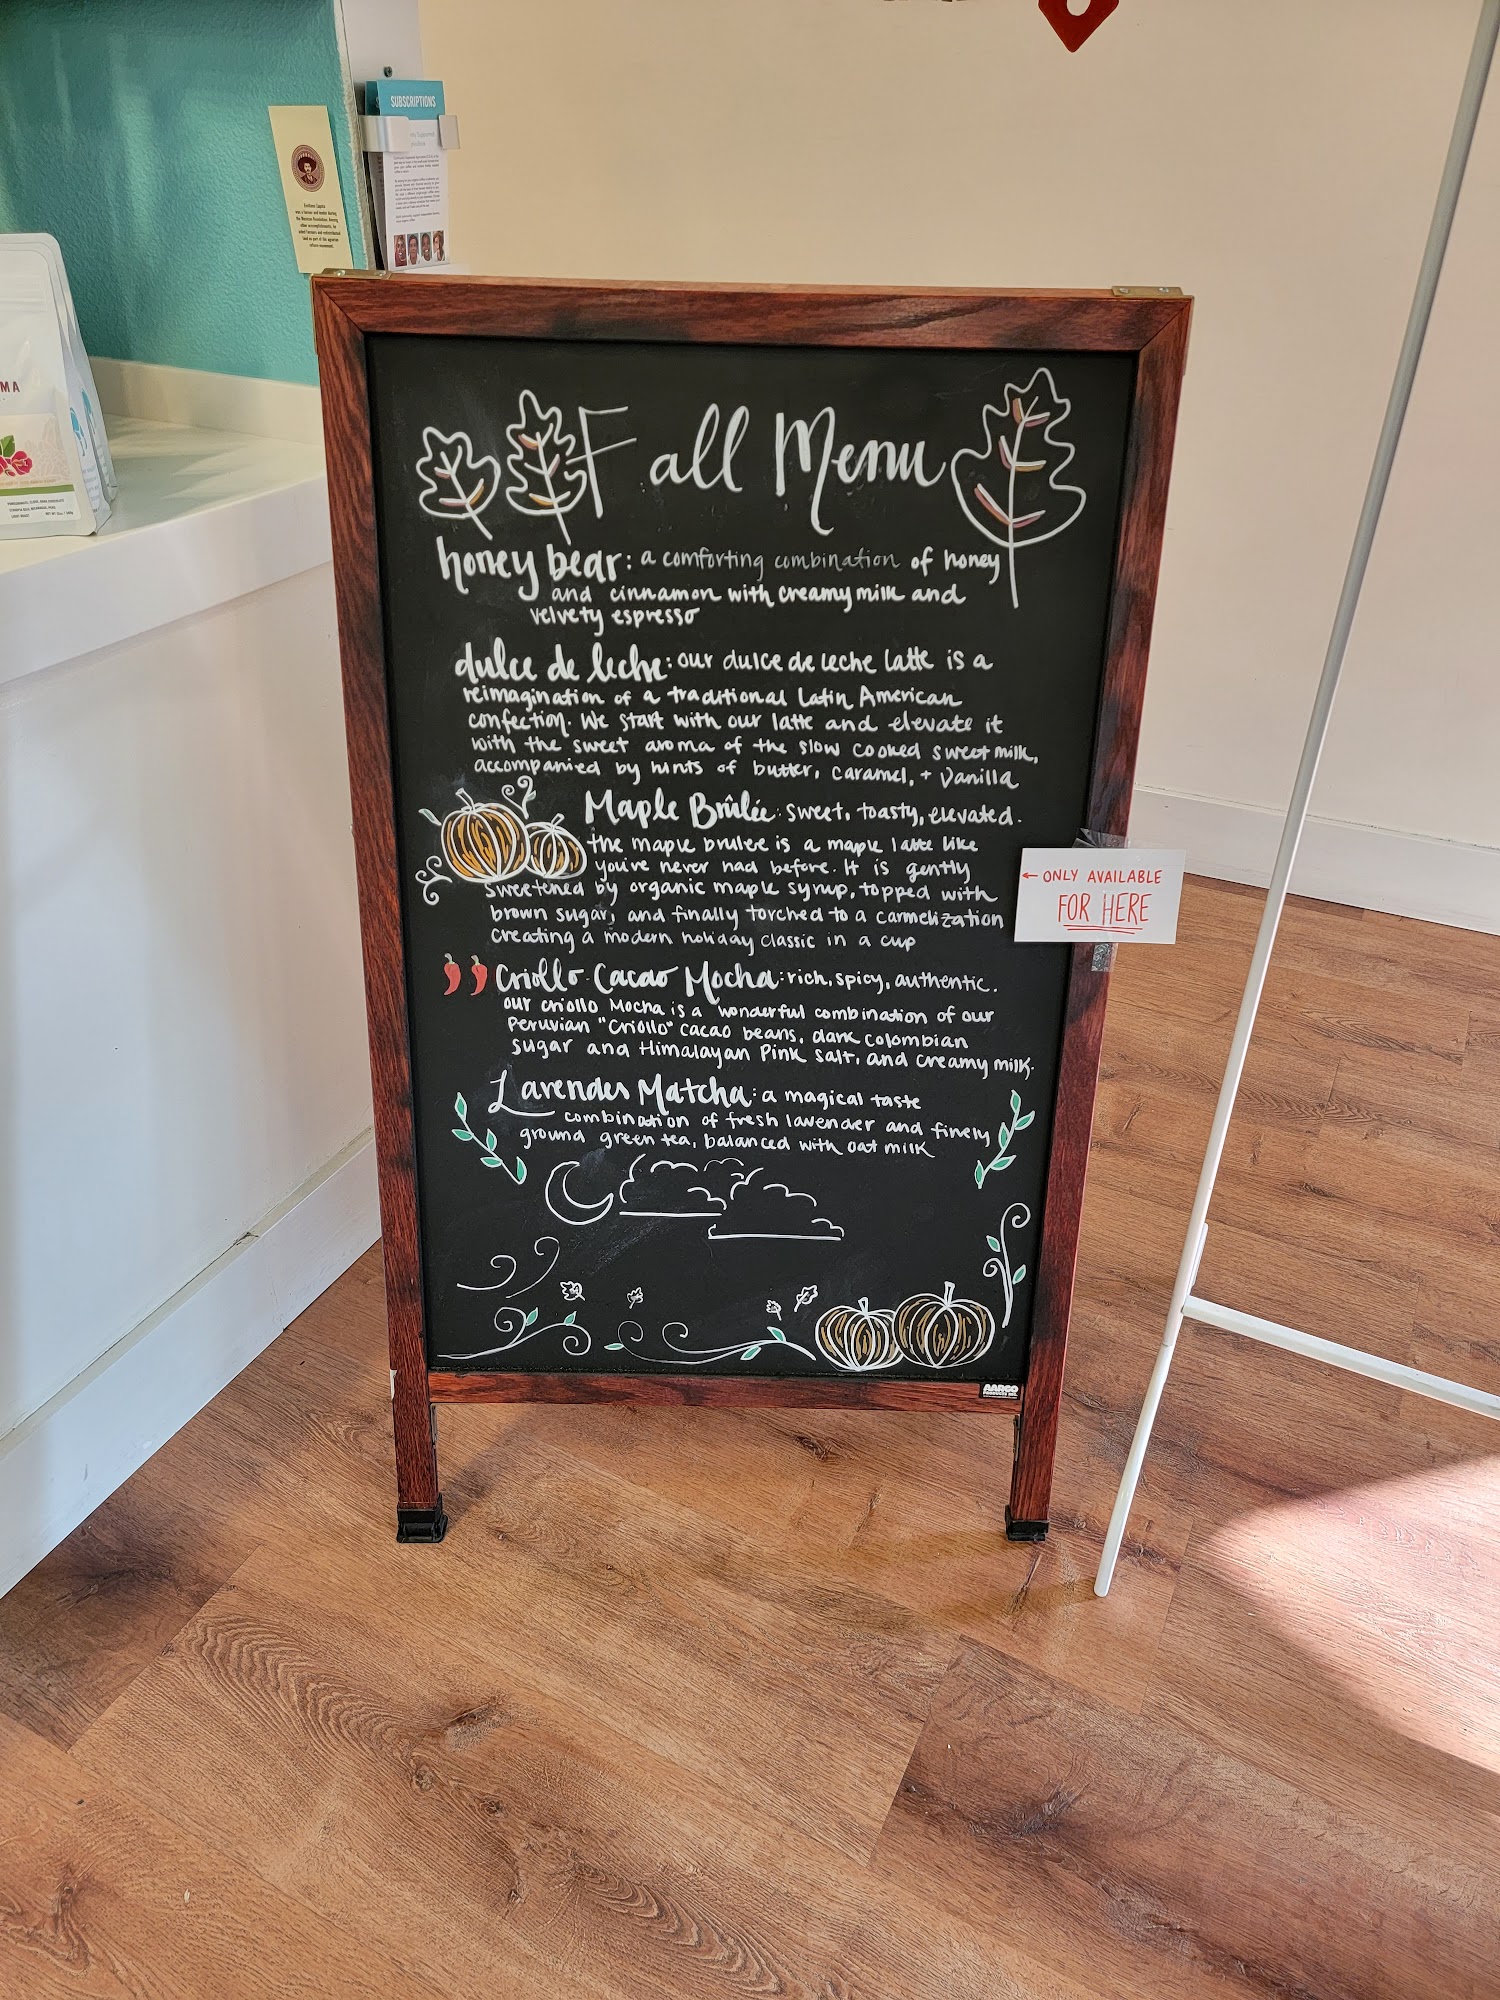 SUBSCRIPTIONS
Emiliano Zapata
was a farmer and leader during
the Mexican Revolution. Among
other accomplishments, he
land as part of the agrarian
reform movement.
MA
Fall Menu
honey bear: a comforting combination of honey
and cinnamon with creamy milk and
velvety espresso
dulce de leche: our dulce de leche latte is a
reimagination of a traditional Latin American
confection. We start with our latte and elevate it
with the sweet aroma of the slow cooked sweet milk,
accompanied by hints of butter, caramel, + vanilla
Maple Brûlée: sweet, toasty, elevated.
the maple brulee is a maple latte like
you've never had before. It is gently
sweetened by organic maple syrup, topped with
brown sugar, and finally torched to a carmelization
creating a modern holiday classic in a cup
← ONLY AVAILABLE
FOR HERE
Criollo Cacao Mocha: rich, spicy, authentic.
our criollo Mocha is a wonderful combination of our
Peruvian "Criollo" cacao beans, dark colombian
sugar and Himalayan Pink Salt, and creamy milk.
Lavender Matcha: a magical taste
combination of fresh lavender and finely
ground green tea, balanced with oat milk
AARCO
PRODUCTS INC.